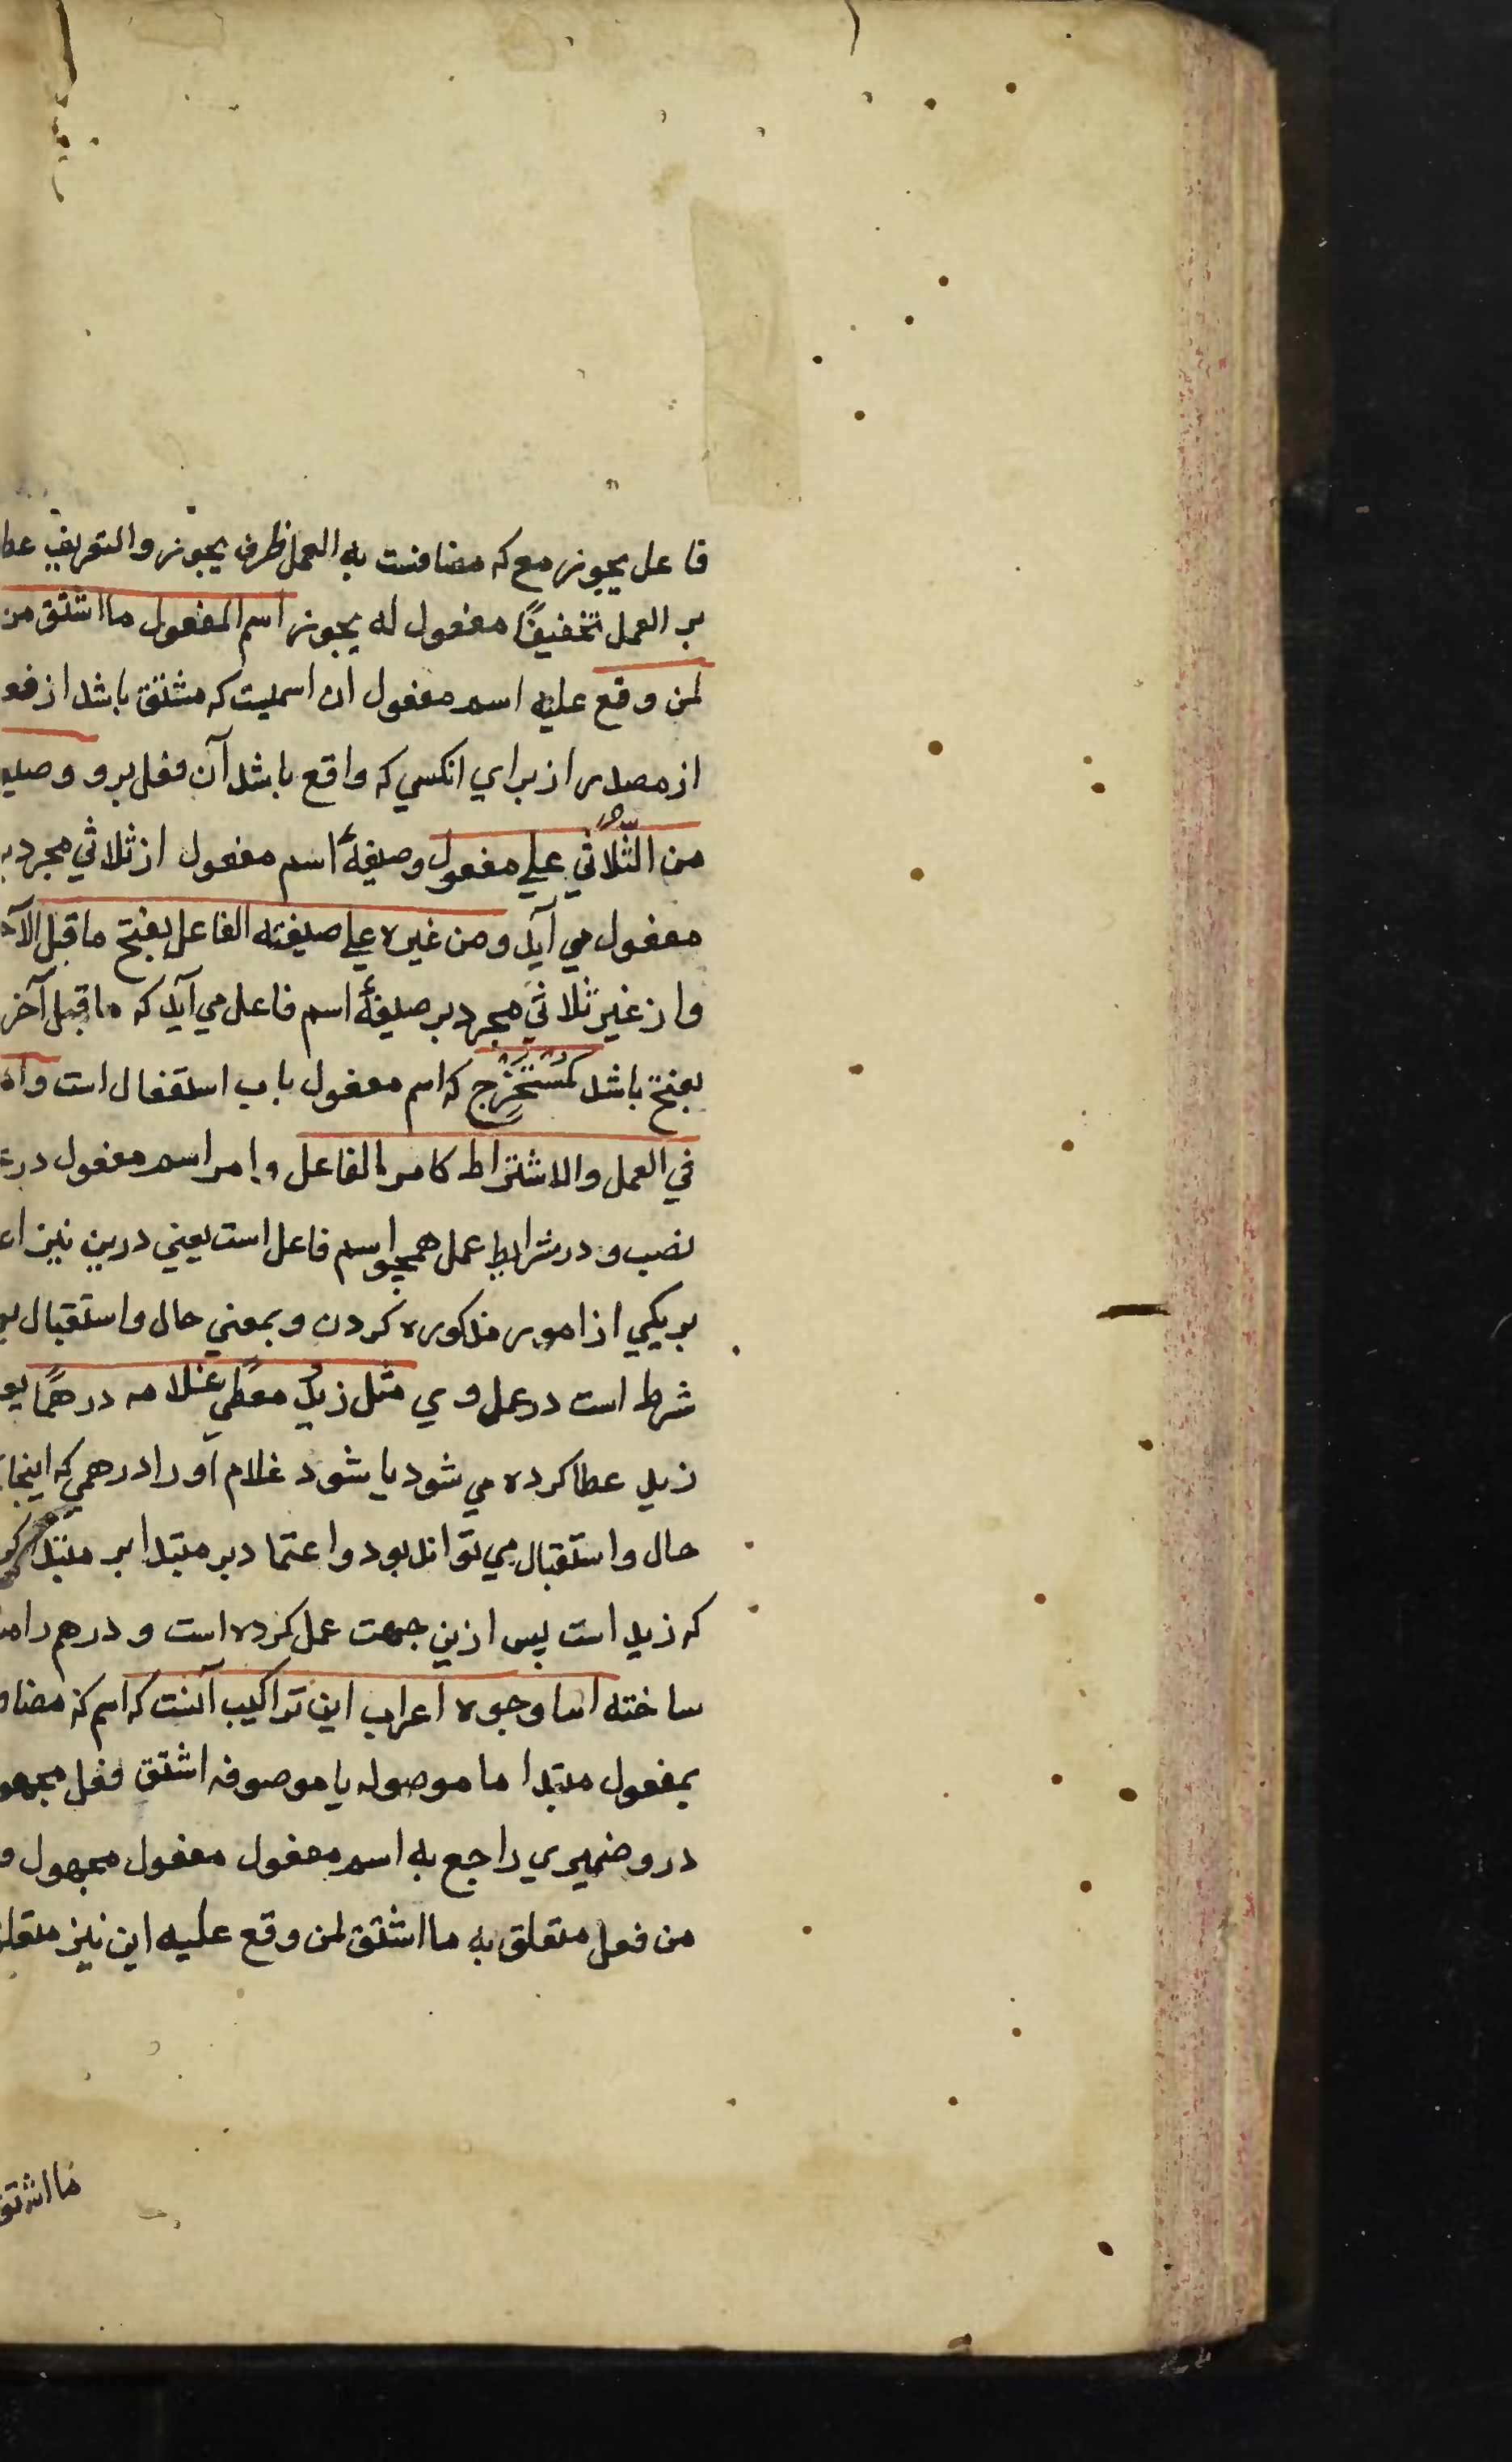 فاعل يجوز مع كه مضافست به العمل ظرف يجوز والتعريف عطف
بر العمل تخفيفًا مفعول له يجوز اسم المفعول ما اشتق من
لمن وقع عليه اسم مفعول ان اسميت كه مشتق باشد از فعل
از مصدر از براي انكسي كه واقع باشد آن فعل برو وصيغ
من الثّلاثي علي مفعول وصيغهٔ اسم مفعول از ثلاثي مجرد بر
مفعول مي آيد ومن غيره علي صيغته الفاعل بفتح ما قبل الآخر
واز غير ثلاثي مجرد بر صيغهٔ اسم فاعل مي آيد كه ما قبل آخر
بفتح باشد كمُستَخرَج كه اسم مفعول باب استفعال است وامر
في العمل والاشتراط كامر الفاعل وامر اسم مفعول در
نصب ودر شرايط عمل همچو اسم فاعل است يعني درين نيز
بر يكي از امور مذكوره كردن وبمعني حال واستقبال
شرط است در عمل وي مثل زيدٌ معطًي غلامه درهمًا
زيد عطا كرده مي شود يا شود غلام او را درهمي كه اينجا
حال واستقبال مي تواند بود واعتماد بر مبتدا بر مبتدا
كه زيد است پس ازين جهت عمل كرده است ودرهم را
ساخته اما وجوه اعراب اين تراكيب آنست كه اسم كه مضاف
بمفعول مبتدا ما موصوله يا موصوفه اشتق فعل مجهول
درو ضميري راجع به اسم مفعول مفعول مجهول و
من فعل متعلق به ما اشتق لمن وقع عليه اين نيز متعلق
ما اشتق